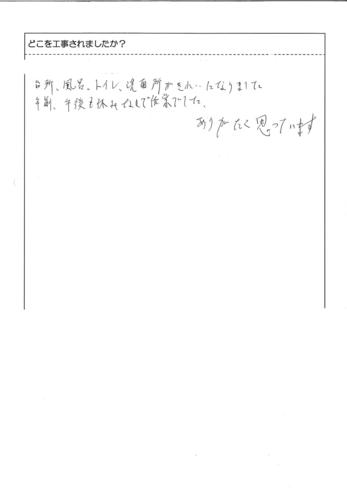 どこを工事されましたか?
台所、風呂、トイレ、洗面所がきれいになりました
午前、午後も休みなしで作業でした。
ありがたく思っています